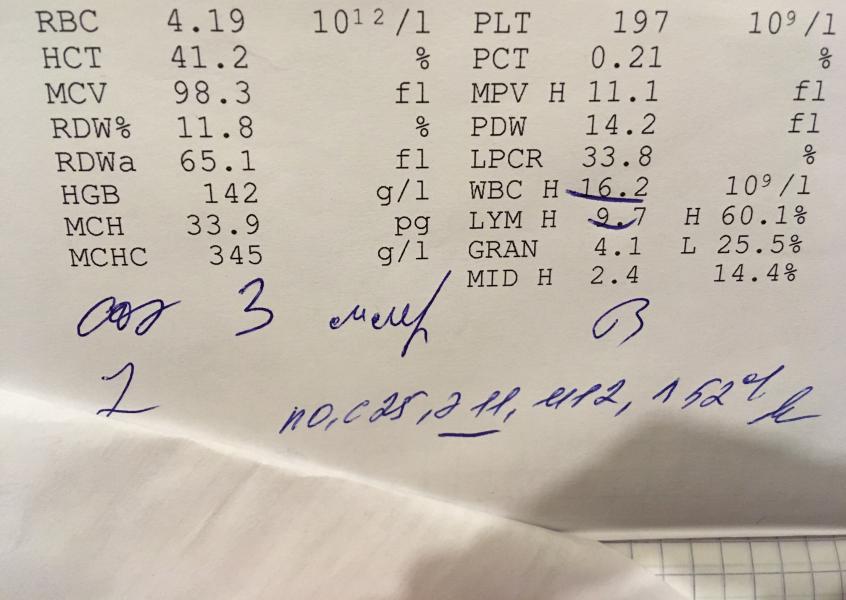 RBC 4.19 10¹²/l PLT 197 10⁹/l
HCT 41.2 % PCT 0.21 %
MCV 98.3 fl MPV H 11.1 fl
RDW% 11.8 % PDW 14.2 fl
RDWa 65.1 fl LPCR 33.8 %
HGB 142 g/l WBC H 16.2 10⁹/l
MCH 33.9 pg LYM H 9.7 H 60.1%
MCHC 345 g/l GRAN 4.1 L 25.5%
MID H 2.4 14.4%
соэ 3 мм/
п0, с25, э11, м12, л52%